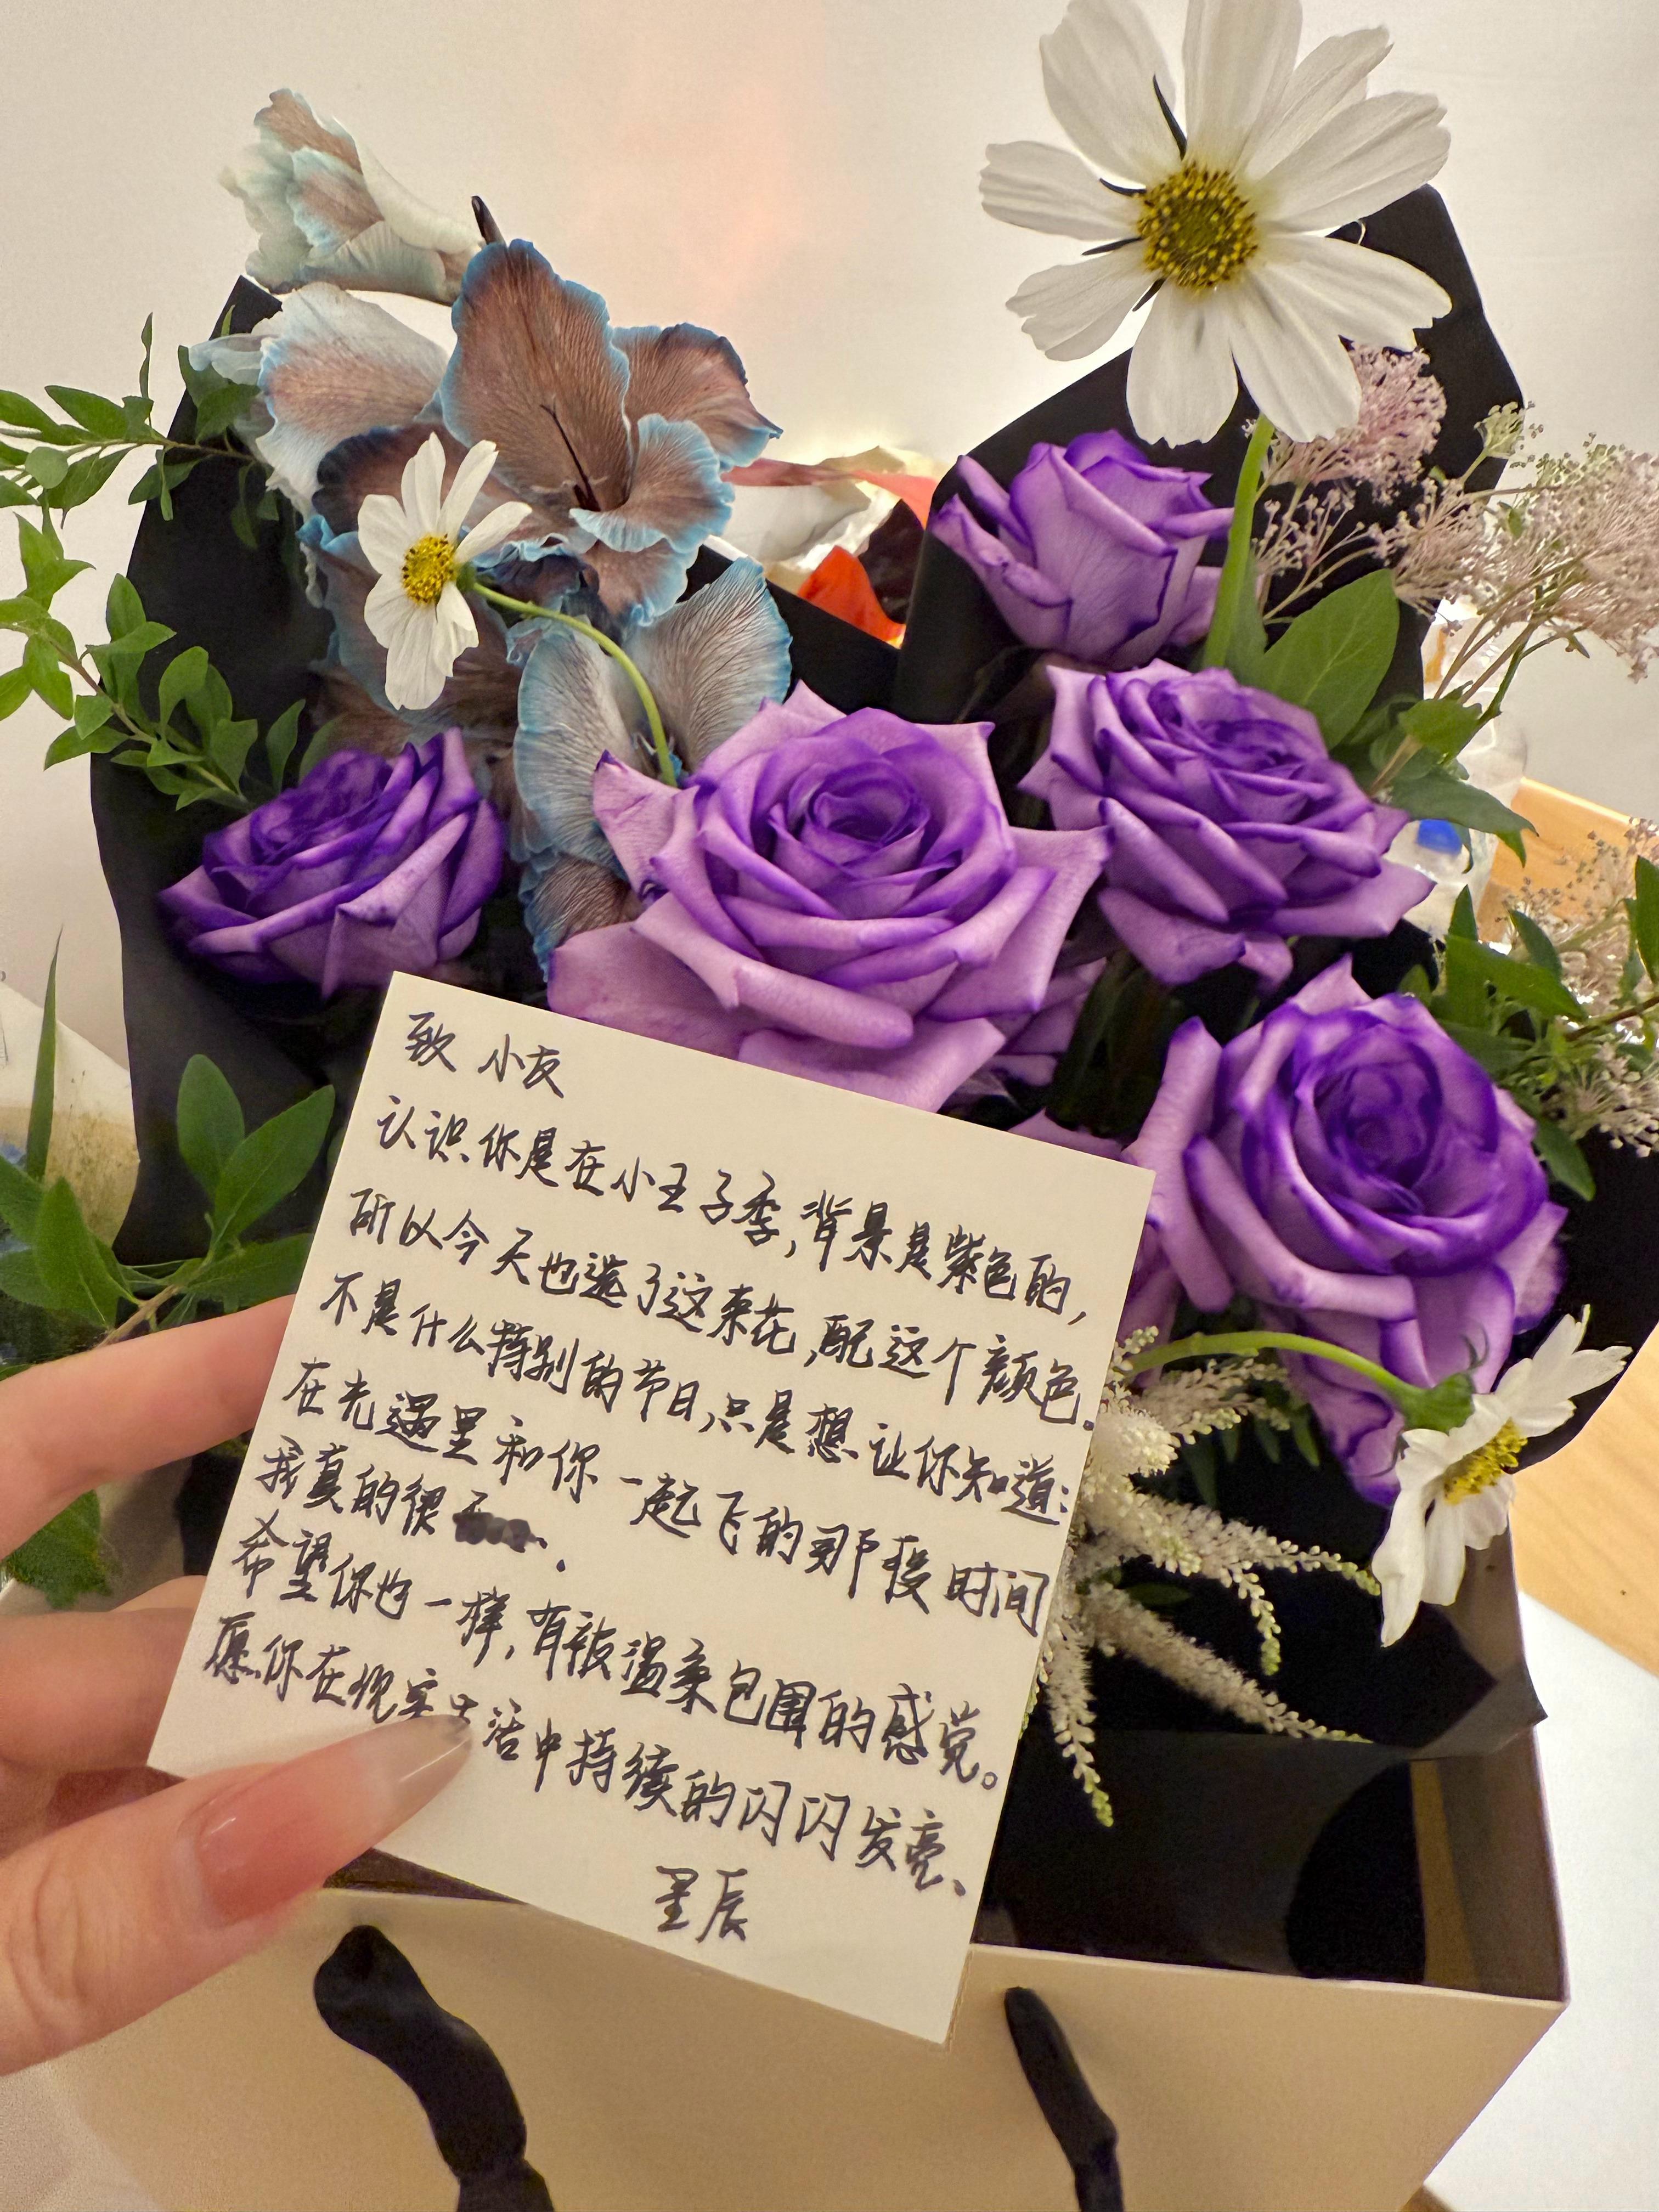 致 小友
认识你是在小王子季,背景是紫色的,
所以今天也选了这束花,配这个颜色。
不是什么特别的节日,只是想让你知道:
在光遇里和你一起飞的那段时间
我真的很
希望你也一样,有被温柔包围的感觉。
愿你在现实生活中持续的闪闪发亮、
星辰